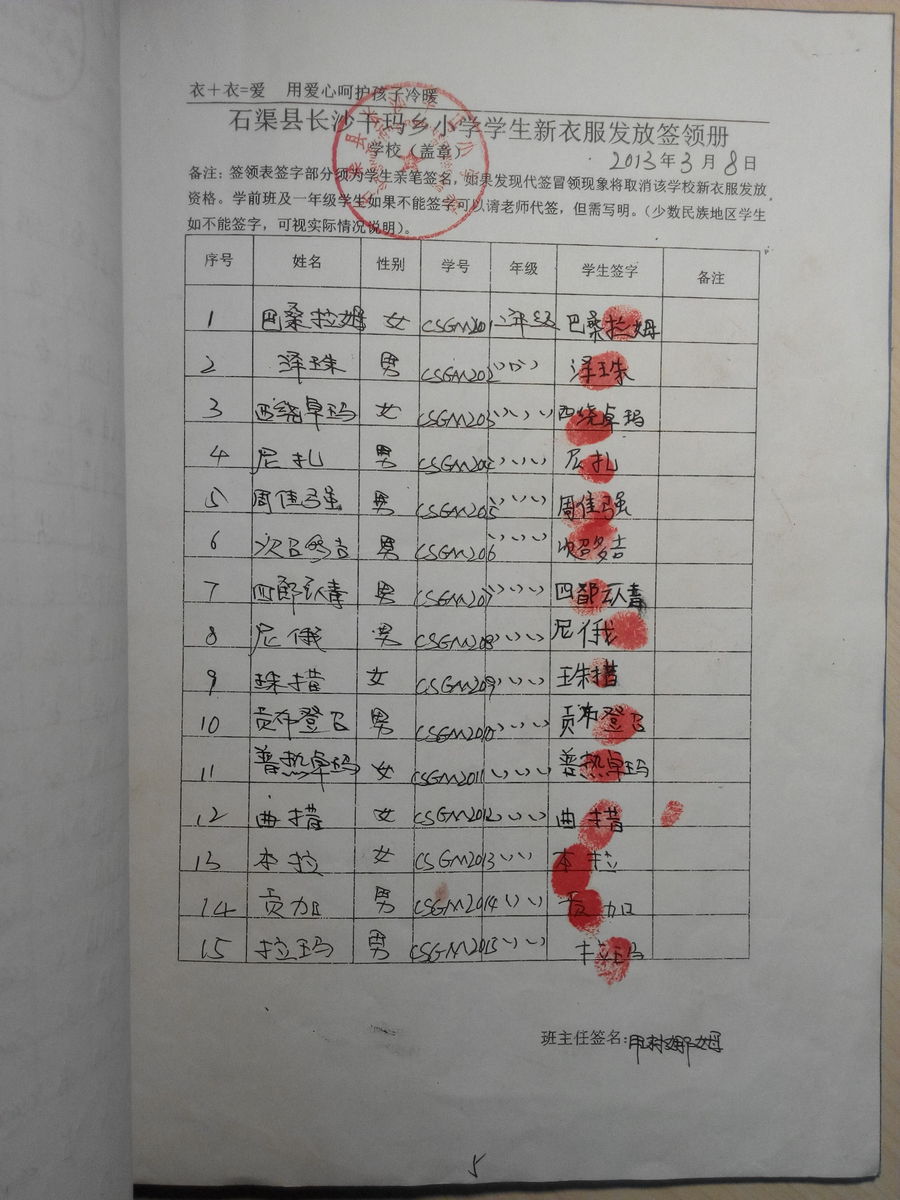 衣＋衣=爱 用爱心呵护孩子冷暖
石渠县长沙干玛乡小学学生新衣服发放签领册
学校（盖章）
2013年3月8日
备注：签领表签字部分须为学生亲笔签名，如果发现代签冒领现象将取消该学校新衣服发放
资格。学前班及一年级学生如果不能签字可以请老师代签，但需写明。（少数民族地区学生
如不能签字，可视实际情况说明）。
序号 姓名 性别 学号 年级 学生签字 备注
1 巴桑拉姆 女 CSGM201 二年级 巴桑拉姆
2 泽珠 男 CSGM202 泽珠
3 西绕卓玛 女 CSGM203 西绕卓玛
4 尼扎 男 CSGM204 尼扎
5 周佳强 男 CSGM205 周佳强
6 男 CSGM206
7 四郎 男 CSGM207 四郎
8 尼俄 男 CSGM208 尼俄
9 珠措 女 CSGM209 珠措
10 贡布登 男 CSGM2010 贡布登
11 普热卓玛 女 CSGM2011 普热卓玛
12 曲措 女 CSGM2012 曲措
13 本拉 女 CSGM2013 本拉
14 贡加 男 CSGM2014 贡加
15 拉玛 男 CSGM2015 拉玛
班主任签名:
5